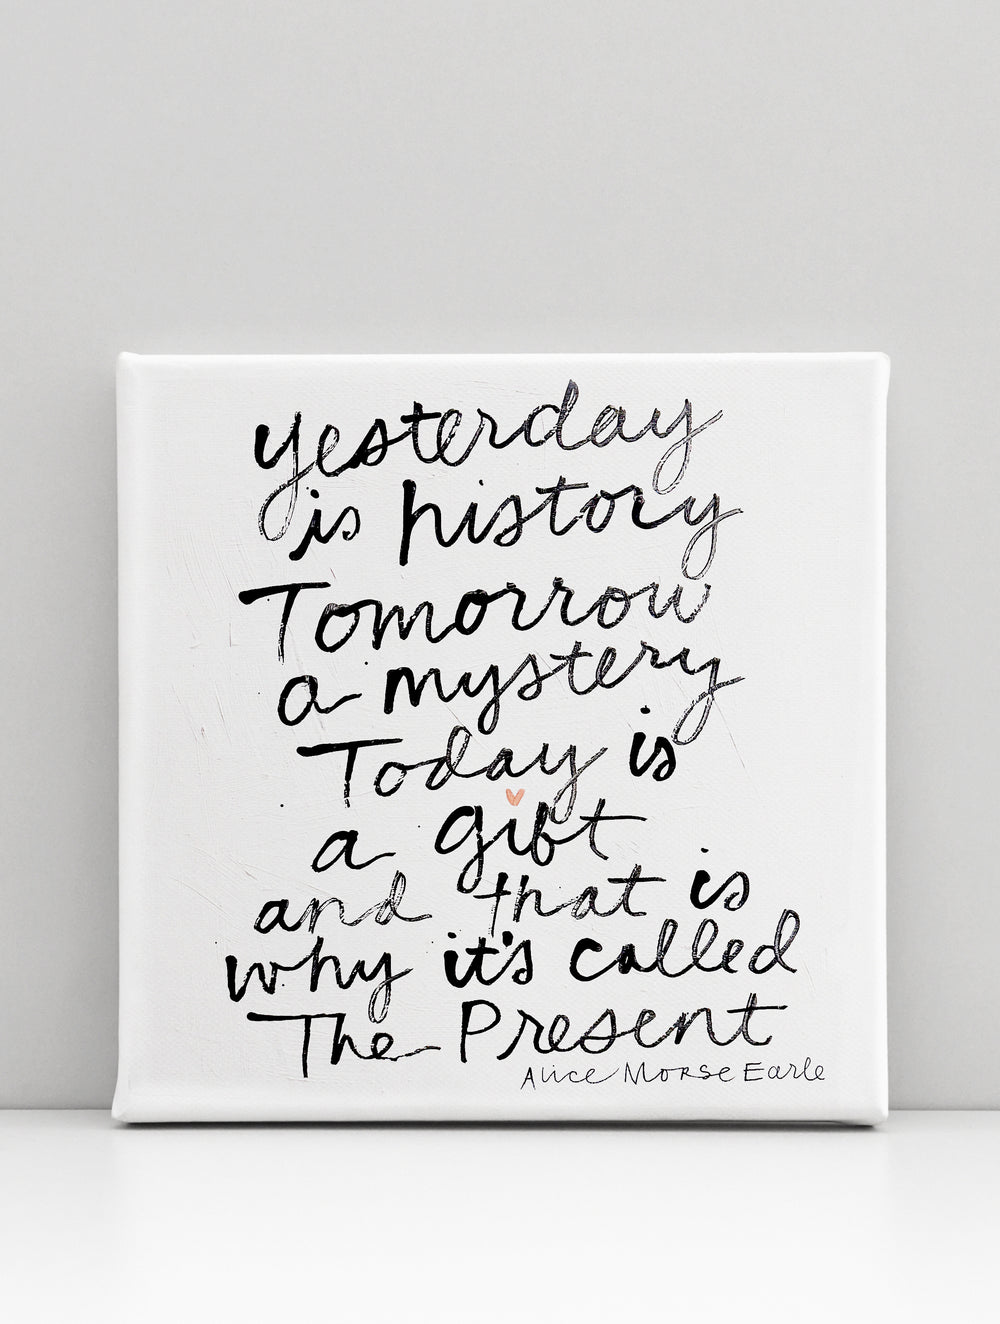 yesterday
is history
Tomorrow
a mystery
Today is
a gift
and that is
why it's called
The Present
Alice Morse Earle